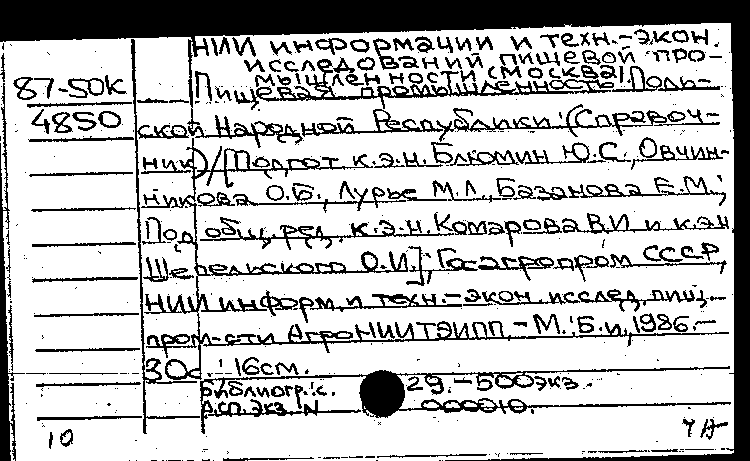 НИИ информации и техн.-экон.
исследований пищевой про-
мышленности (Москва)
87-50К Пищевая промышленность Поль-
4850 ской Народной Республики: (Справоч-
ник)/[Подгот. к.э.н. Блюмин Ю.С., Овчин-
никова О.Б., Лурье М.Л., Базанова Е.М.;
Под общ. ред. к.э.н. Комарова В.И. и к.э.н.
О.И.]; Госагропром СССР,
НИИ информ. и техн.-экон. исслед. пищ.
пром-сти АгроНИИТЭИПП. - М.: Б.и., 1986. -
30с.; 16см.
Библиогр.: с. 29. - 500экз.
N
10